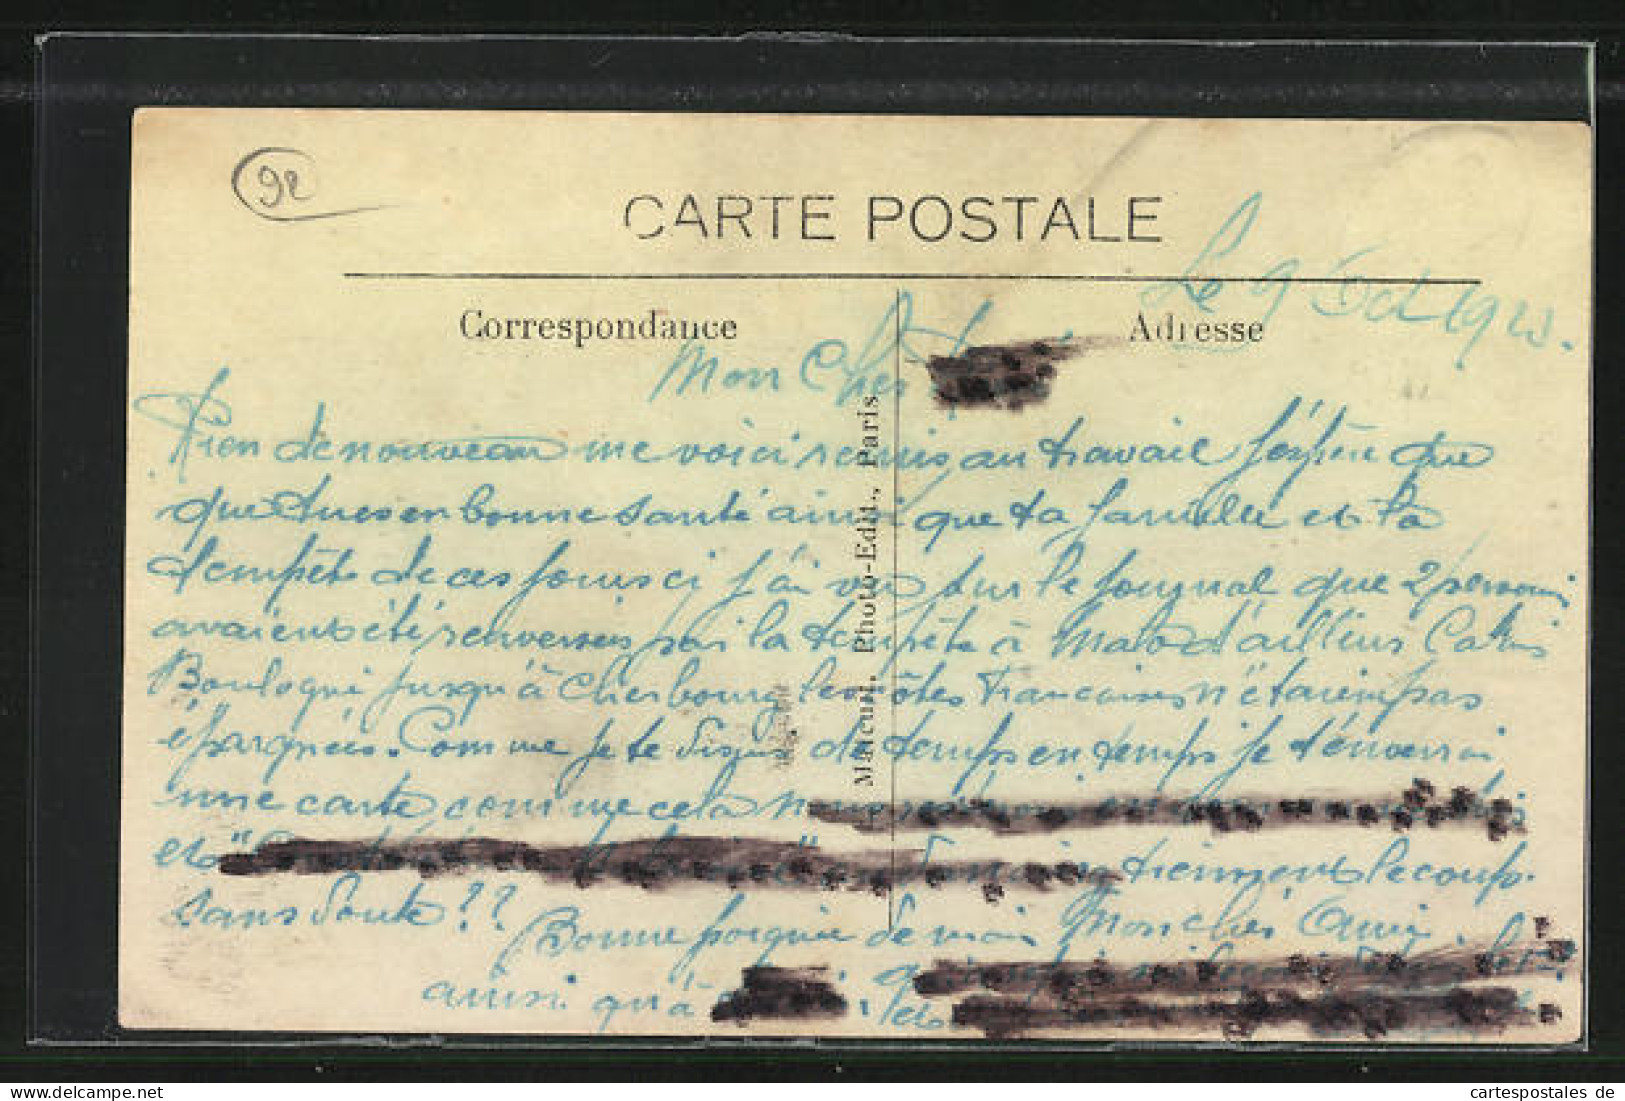 92
CARTE POSTALE
Le 9 Oct 1923.
Correspondance
Adresse
Mon Cher
Rien de nouveau me voici remis au travail J'espère que
que tu es en bonne santé ainsi que ta famille et la
tempête de ces jours ci j'ai vu sur le journal que 2 personnes
avaient été renversées par la tempête à Malo d'ailleurs Calais
Boulogne jusqu'à Cherbourg les côtes Françaises n'étaient pas
épargnées. Comme je te disais de temps en temps je t'enverrai
une carte comme cela
et tiennent le coup.
sans doute ??
Bonne poignée de main Mon cher Ami
ainsi qu'à et
Marcuil, Photo-Edit., Paris
cartespostales.de